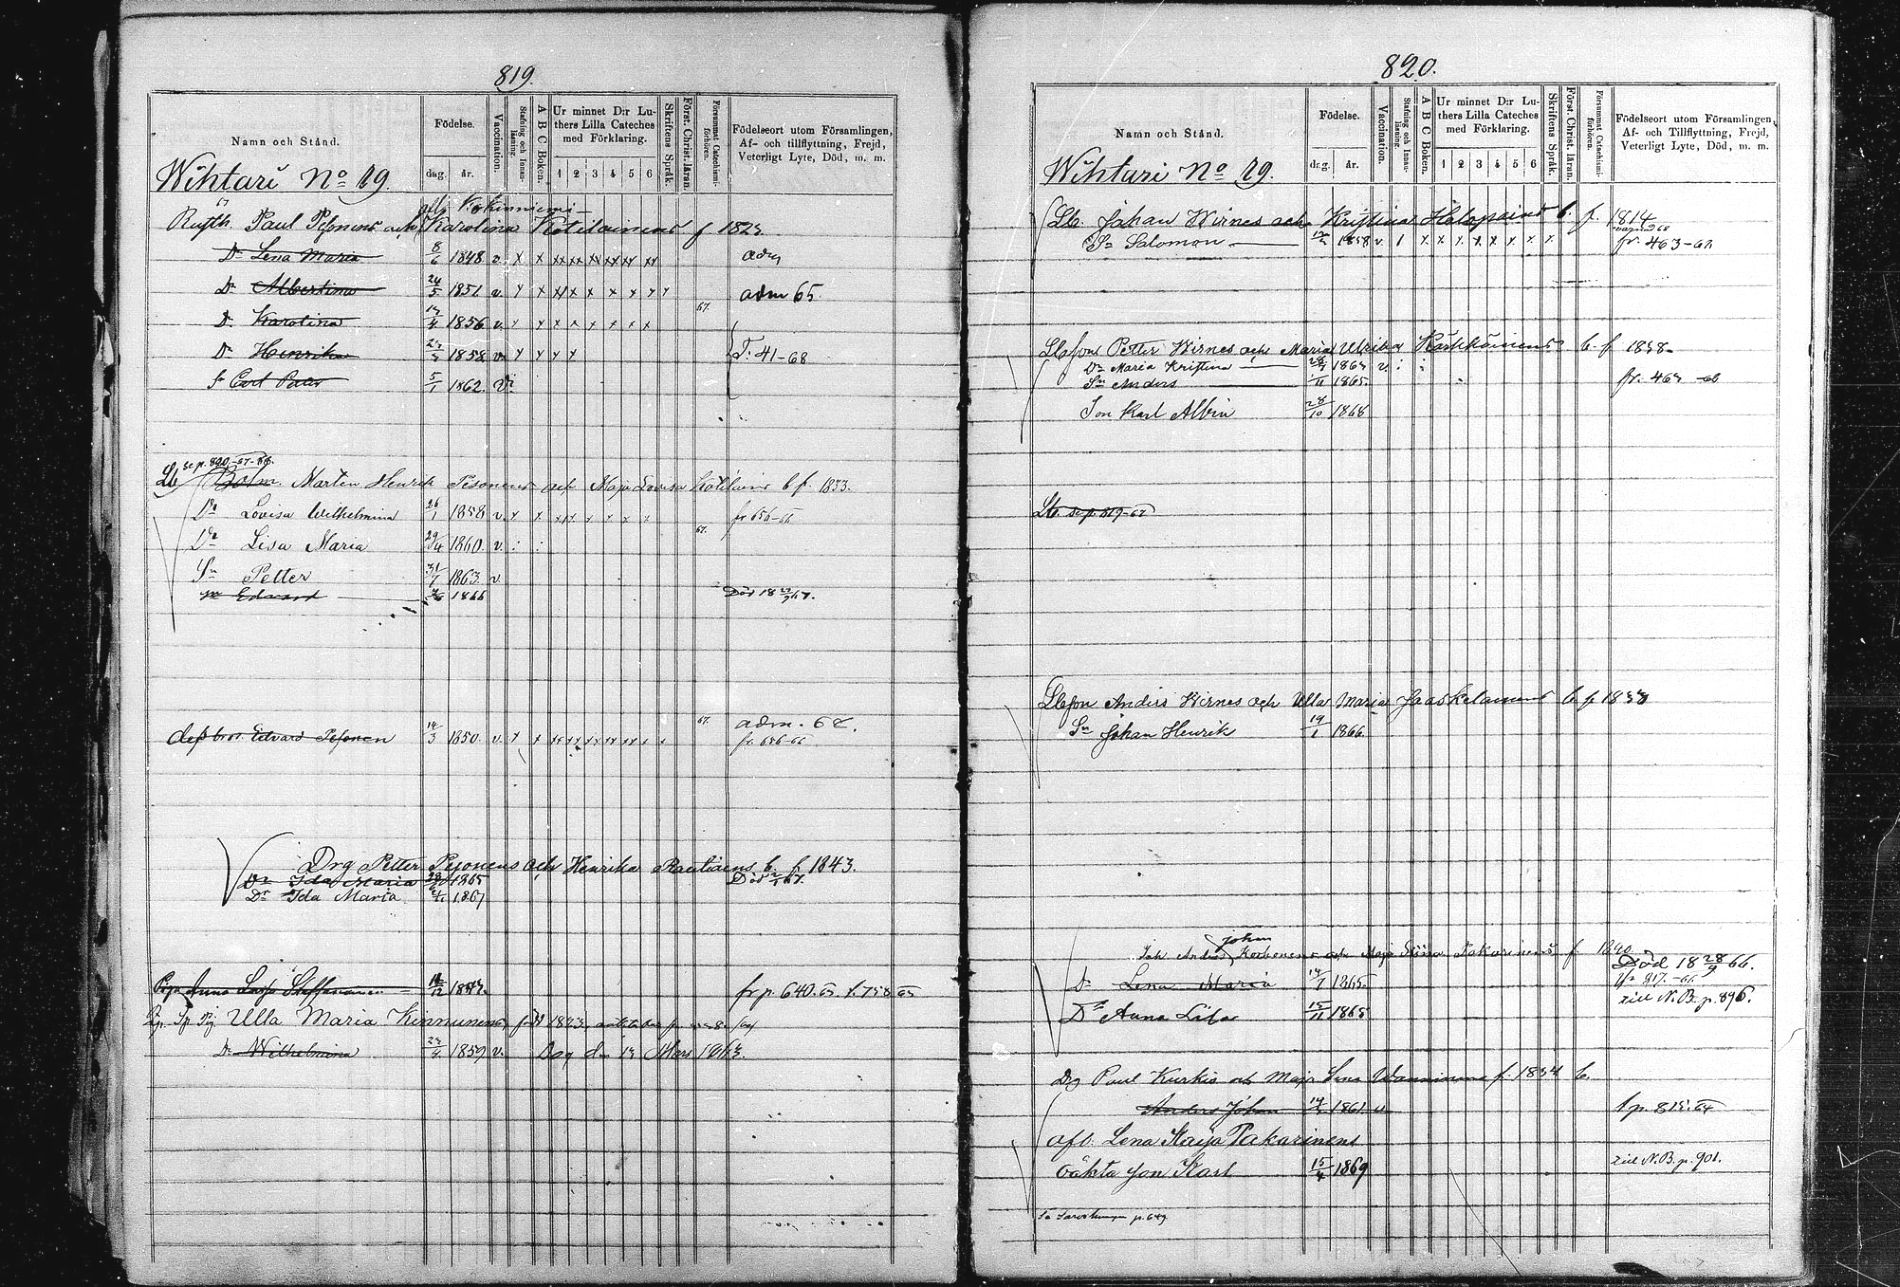 819.
Namn och Stånd.
Födelse.
dag. år.
Vaccination.
Stafning och Innan-läsning.
A B C Boken.
Ur minnet D:r Lu-
thers Lilla Cateches
med Förklaring.
1 2 3 4 5 6
Skriftens Språk.
Först. Christ. läran.
Försummat Catechismi-förhören.
Födelseort utom Församlingen,
Af- och tillflyttning, Frejd,
Veterligt Lyte, Död, m. m.
Wihtari No 19.
Paul Pesonens och Karolina Kotilainens f
Dr Lena Maria 8/6 1848 v. x x xx xx xx xx xx xx
Dr Albertina 24/5 1851 v. x x xx x x x x x x adm 65.
Dr Karolina 1856 v. x x x x x x x x 67.
Dr Henrika 1858 v. x x x x T. 41-68
Sn Carl Petter 5/1 1862 v.
Lb Mårten Henrik Pesonens och Maja Lovisa Kotilains b f. 1833.
Dr Lovisa Wilhelmina 26/1 1858 v. x x xx x x x x x fr 656-66
Dr Lisa Maria 29/4 1860. v. : : 67.
Sn Petter 31/7 1863. v.
Sn Edvard 1866 Död 18
dess bror Edvard Pesonen 14/3 1850. v. x x xx xx xx xx xx xx x x 67. adm. 67.
fr. 656-66
Drg Petter Pesonens och Henrika Rautiains b. f. 1843.
Dr Ida Maria 1865 Död
Dr Ida Maria 1867
Piga Anna Steffanainen fr p. 640. 63. t. 758 65
Ulla Maria Kinnunens född 1823,
Dr Wilhelmina 1859 v. den 13 Mars 1863.
820.
Namn och Stånd.
Födelse.
dag. år.
Vaccination.
Stafning och Innan-läsning.
A B C Boken.
Ur minnet D:r Lu-
thers Lilla Cateches
med Förklaring.
1 2 3 4 5 6
Skriftens Språk.
Först. Christ. läran.
Försummat Catechismi-förhören.
Födelseort utom Församlingen,
Af- och Tillflyttning, Frejd,
Veterligt Lyte, Död, m. m.
Wihtari No 19.
Lb. Johan Hirnes och Kristina Halopains b. f. 1814
Sn Salomon 1858 v. 1 x x x x x x x x fr. 463-60
Lbsson Petter Hirnes och Maria Ulrika Karkkainens b. f 1838.
Dr Maria Kristina 1863 v.
Sn Anders 1865.
Son Karl Albin 28/10 1868
Lb. se p. 819-67
Lbsson Anders Hirnes och Ulla Maria Jaaskelainens b. f 1838
Sn Johan Henrik 19/1 1866.
Johan
Anders Korhonens och Maja Stina Pakarinens f 1840.
Död 18 28/9 66.
Dr Lena Maria 14/7 1865. fr 817-66.
till N.B. p. 896.
Dr Anna Lisa 15/11 1868
Drg Paul Kurkis och Maja Lena Wanninens f. 1834 b.
Anders Johan 1861. v. t p. 815. 64
afl. Lena Kajsa Pakarinens
oäkta son Karl 15/4 1869 till N.B. p. 901.
p. 649